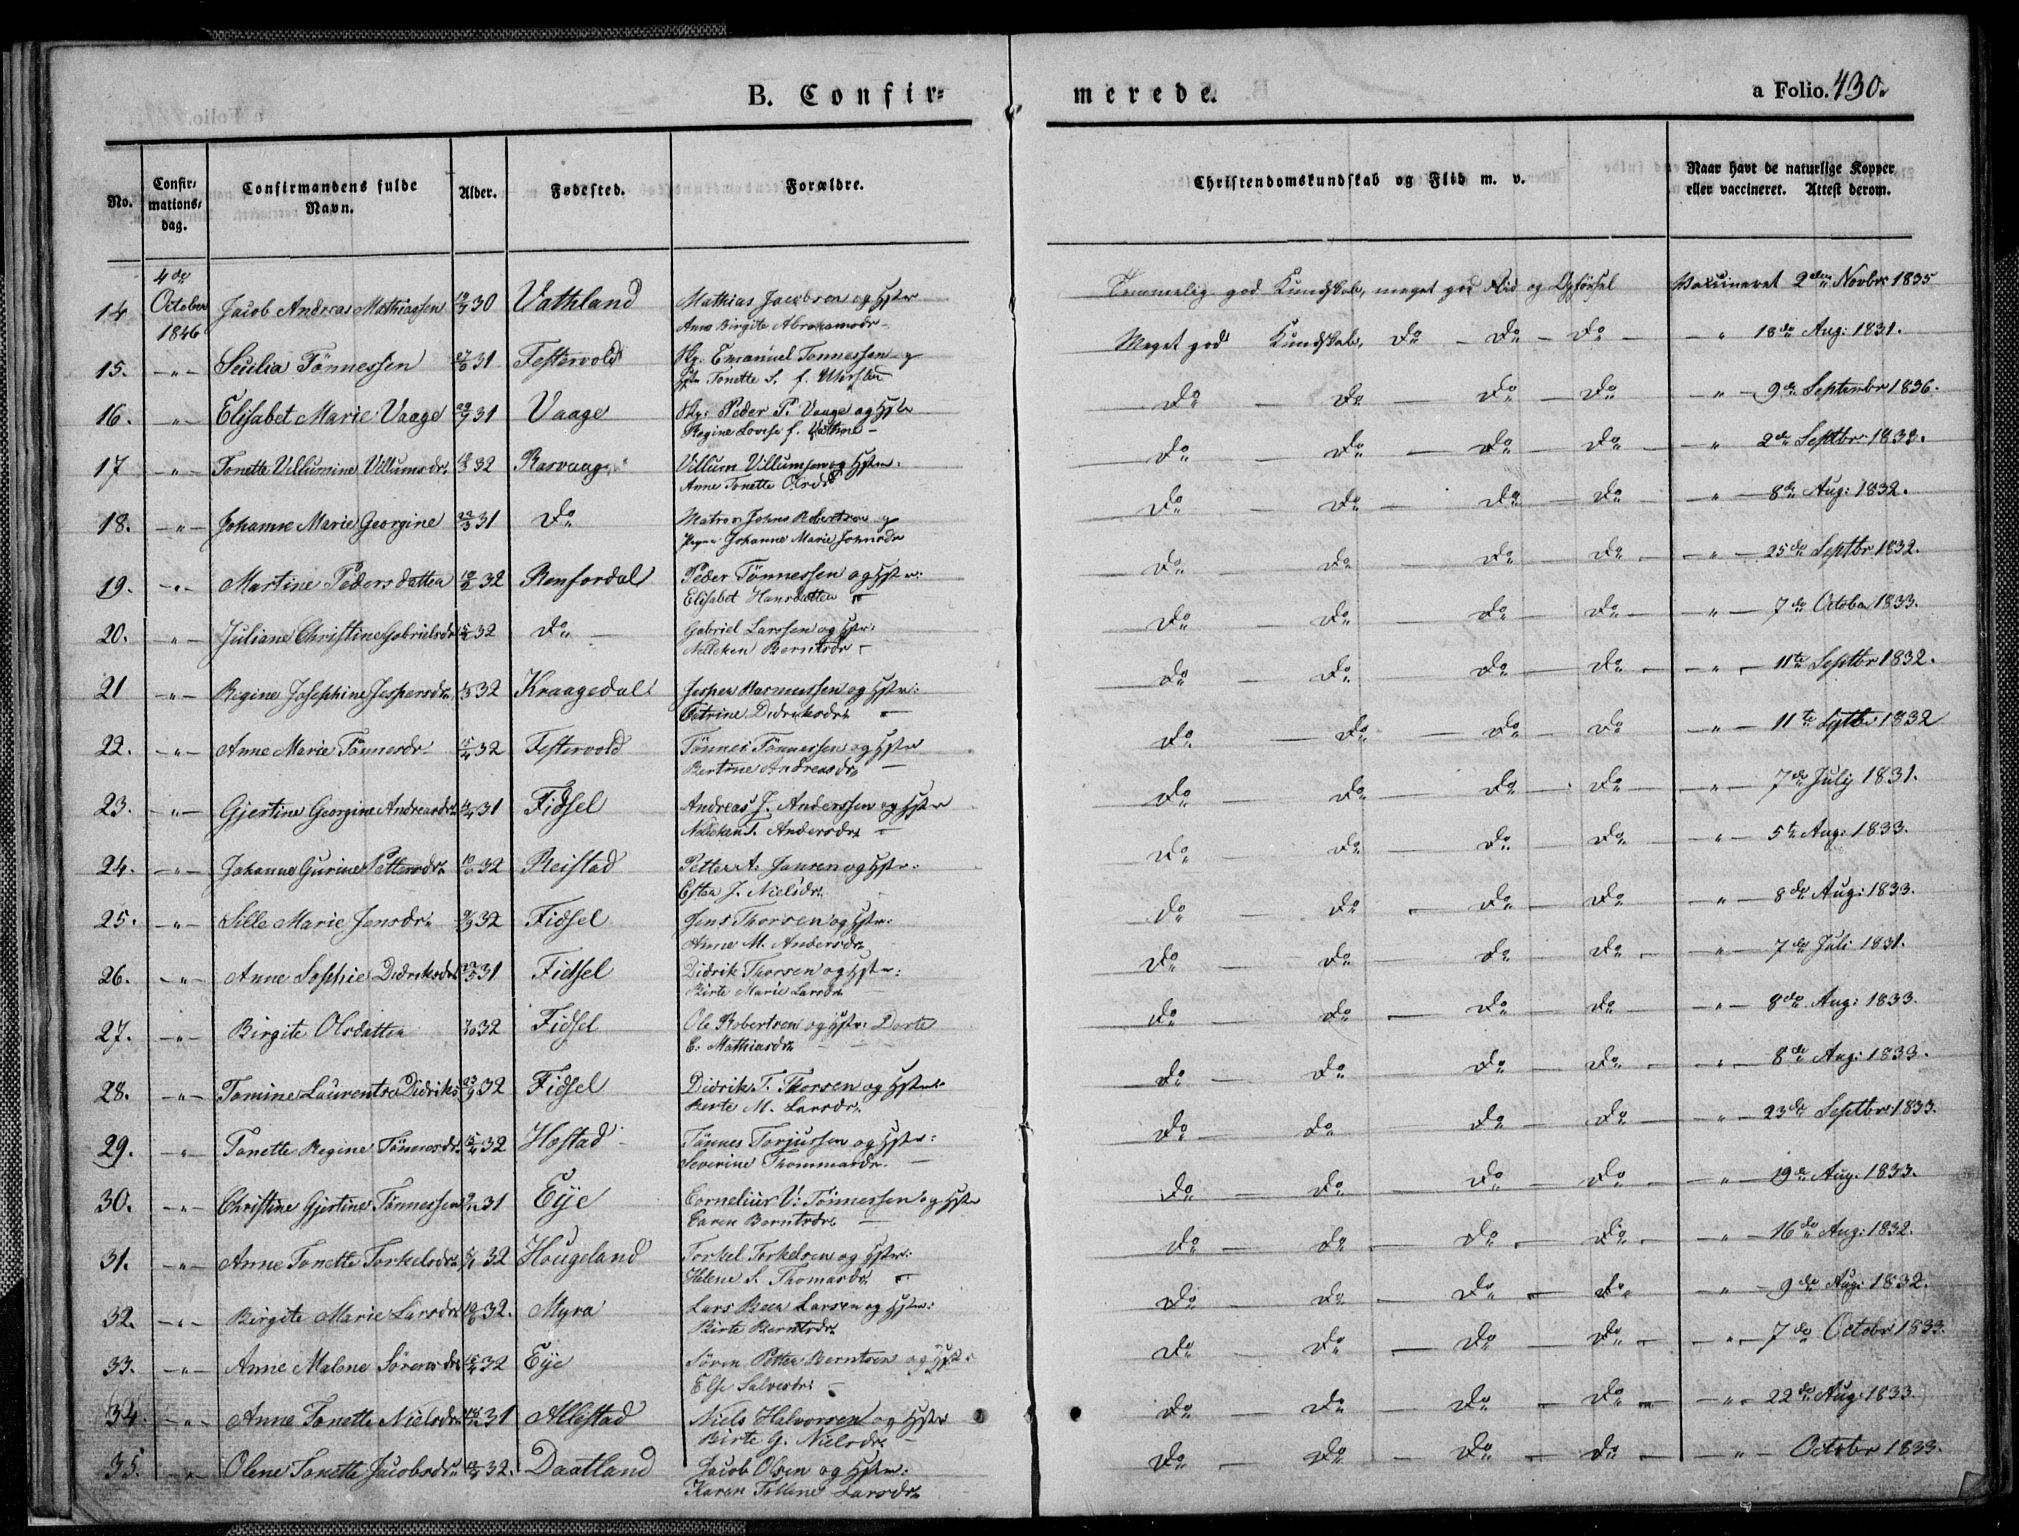 B. Confir=
merede.
a Folio. 430.
No.
Confir=
mations=
dag.
Confirmandens fulde
Navn.
Alder.
Fødested.
Forældre.
Christendomskundskab og Flid m. v.
Naar havt de naturlige Kopper
eller vaccineret. Attest derom.
4de
October
1846
14 Jacob Andreas Mathiassen 30 Vathland Mathias Jacobsen og Hstr
Anne Birgite Abrahamsdr
Temmelig god Kundskab, meget god Flid og Opførsel Vaccineret 2den Novbr 1835
15. -"- Tønnessen 31 Festervold Emanuel Tonnessen og
Hstr Tonette S. f.
Meget god Kundskab, Do - Do - Do - " 18de Aug: 1831.
16. -"- Elisabet Marie Vaage 31 Vaage Peder P. Vaage og Hstr
Regine Lovise f.
Do - Do - Do - Do -"- 9de Septembr 1836.
17 -"- Tonette Villumine Villumsdr 32 Rasvaag Villum Villumsen og Hstr:
Anne Tonette Olsd
Do - Do - Do - Do - " 2de Septbr 1833.
18. -"- Johanne Marie Georgine 31 Do Matros Johns Robertsen og
Johanne Marie Johnsdr
Do - Do - Do - Do - " 8de Aug: 1832.
19. -"- Martine Pedersdatter 32 Renfordal Peder Tønnessen og Hstr:
Elisabet Hansdatter
Do - Do - Do - Do - " 25de Septbr 1832.
20. -"- Juliane Christine Gabrielsdr 32 Do Gabriel Larssen og Hstr:
Nilleken Berntsdr
Do - Do - Do - Do - " 7de October 1833.
21 -"- Regine Josephine Jespersdr 32 Kraagedal Jesper Rasmussen og Hstr:
Catrine Didriksdr
Do - Do - Do - Do - " 11te Septbr 1832.
22. -"- Anne Marie Tønnesdr 32 Festervold Tønnes Tønnessen og Hstr
Bertine Andreasdr
Do - Do - Do - Do - " 11te Septbr 1832
23. -"- Gjertine Georgine Andreasdr 31 Fidsel Andreas J. Anderssen og Hstr
Nilleken T. Andersdr
Do - Do - Do - Do -"- 7de July 1831.
24. -"- Johanne Gurine Pettersdr 32 Reistad Petter A. Jansen og Hstr:
Ester J. Nielsdr.
Do - Do - Do - Do - " 5te Aug: 1833.
25. -"- Sille Marie Jensdr 32 Fidsel Jens Thorsen og Hstr:
Anne M. Andersdr
Do - Do - Do - Do - " 8de Aug: 1833.
26. -"- Anne Sophie Didriksdr 31 Fidsel Didrik Thorsen og Hstr:
Birte Marie Larsdr
Do - Do - Do - Do -"- 7de Juli 1831.
27. -"- Birgite Olsdatter 32 Fidsel Ole Robertsen og Hstr: Dorte
E. Mathiasdr
Do - Do - Do - Do - " 8de Aug: 1833.
28. -"- Tomine Laurentse Didriks 32 Fidsel Didrik T. Thorsen og Hstr:
Berte M. Larsdr.
Do - Do - Do - Do - " 8de Aug: 1833.
29. -"- Tonette Regine Tønnesdr 32 Hæstad Tønnes Torjussen og Hstr:
Severine Thommasdr.
Do - Do - Do - Do -"- 23de Septbr 1833.
30. -"- Christine Gjertine Tønnessen 31 Eye Cornelius V: Tønnessen og Hstr
Caren Berntsdr
Do - Do - Do - Do -"- 19de Aug: 1833.
31. -"- Anne Tonette Torkelsdr 32 Hougeland Torkel Torkelsen og Hstr:
Helene S. Thomasdr
Do - Do - Do - Do -"- 16de Aug: 1832.
32. -"- Birgite Marie Larsdr 32. Myra Lars Beer Larsen og Hstr:
Birte Berntsdr
Do - Do - Do - Do " 9de Aug: 1832.
33. -"- Anne Malene Sørensdr 32 Eye Søren Petter Berntsen og Hstr:
Else Salvesdr:
Do - Do - Do - Do -"- 7de Octobr 1833.
34. -"- Anne Tonette Nielsdr 31 Allestad Niels Halvorsen og Hstr
Birte G. Nielsdr
Do - Do - Do - Do -"- 22de Aug: 1833.
35. -"- Olene Tonette Jacobsdr 32. Daatland Jacob Olsen og Hstr:
Karen Tolline Larsdr.
Do - Do - Do - Do - " - Octobr 1833.